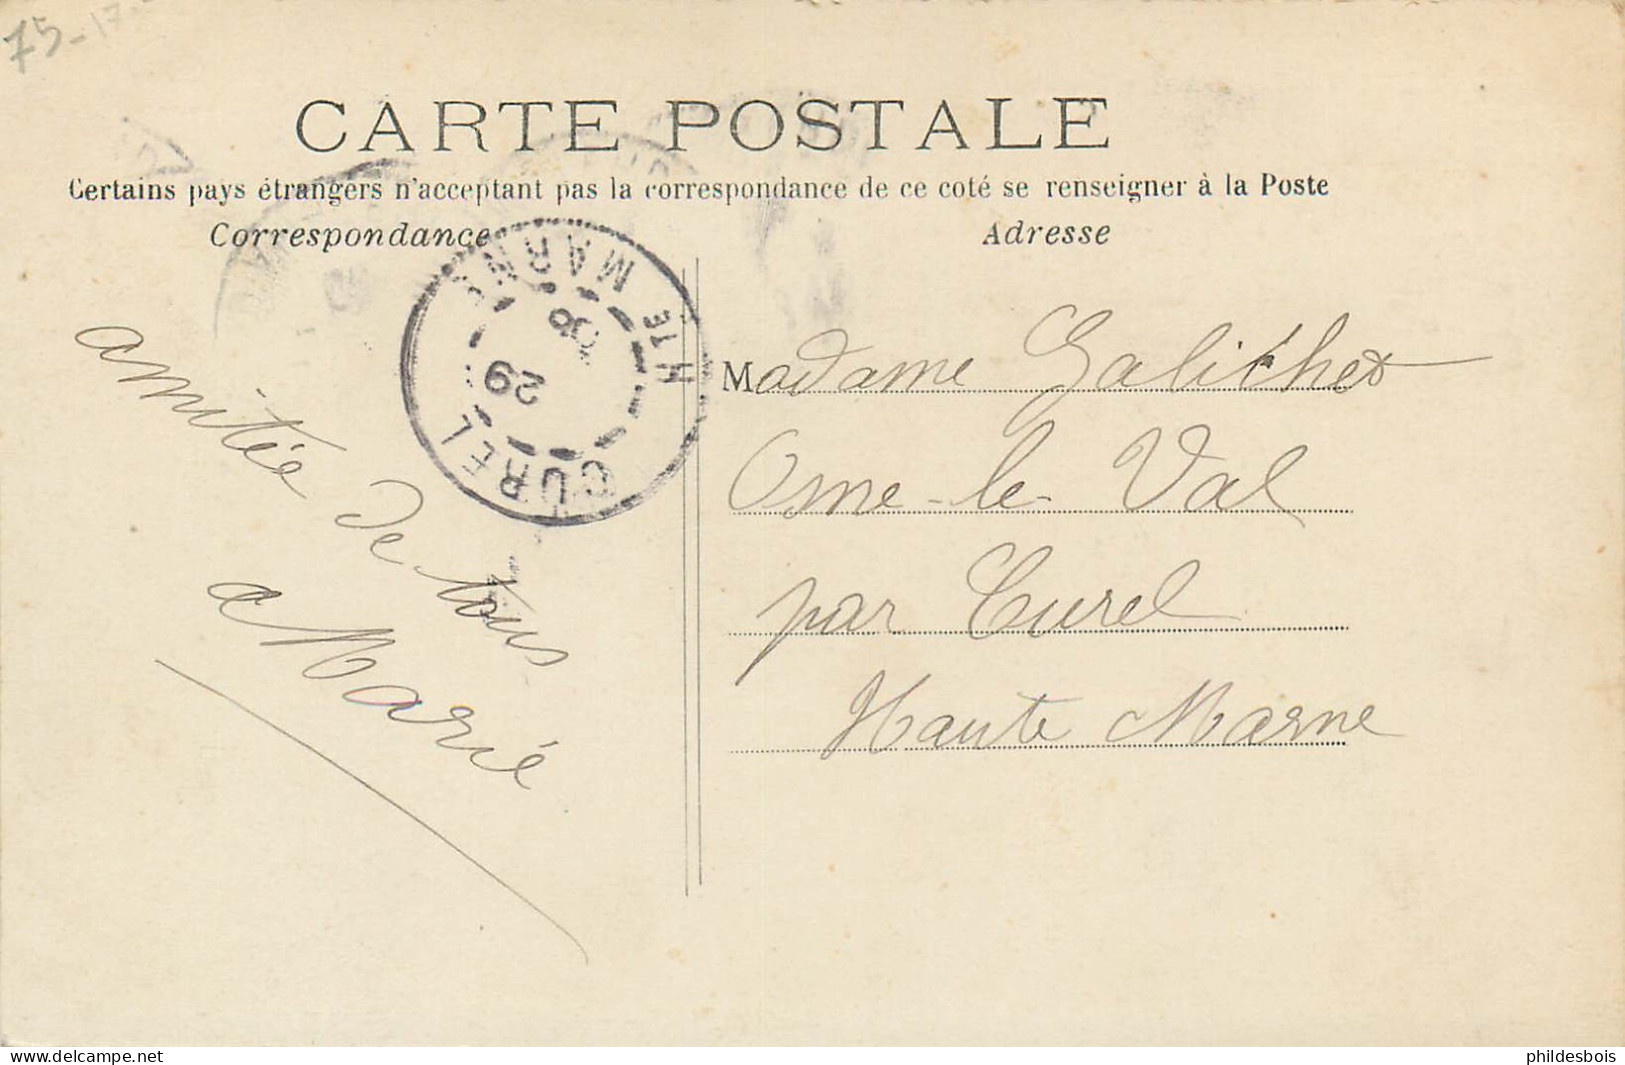 75-17-
CARTE POSTALE
Certains pays étrangers n'acceptant pas la correspondance de ce coté se renseigner à la Poste
Correspondance
Adresse
CUREL
HTE MARNE
29
08
amitié de tous
a Marie
Madame Galichet
Osne-le-Val
par Curel
Haute Marne
delcampe.net
phildesbois